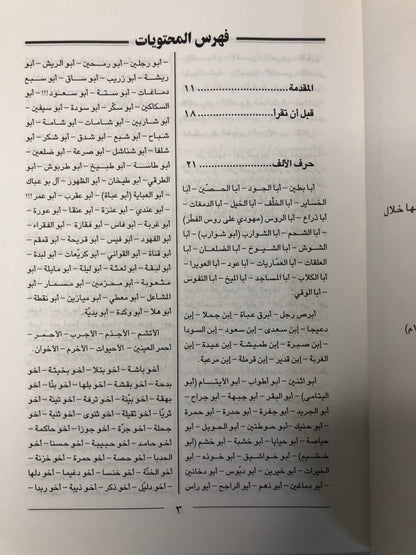 فهرس المحتويات
المقدمة .......................... ١١
قبل أن تقرأ .................... ١٨
حرف الألف .................... ٢١
أبا بطين – أبا الجود – أبا الحصين – أبا
الخساير – أبا الخلف – أبا الخيل – أبا الدمغات –
أبا ذراع – أبا الروس (مهودي على روس الفطر)
– أبا الشحم – أبا الشوارب (أبو شوارب) – أبا
الشوش – أبا الشيوخ – أبا الضلعان – أبا
العلقات – أبا العماريات – أبا عود – أبا العويرا –
أبا الكلاب – أبا المساجد – أبا الميخ – أبا النفوس
– أبا الوفي.
أبرص رجل – أبرق عباة – إبن جملا – إبن
دعيجا – إبن سعدى – إبن سعود – إبن السودا
– إبن صبرة – إبن طميشة – إبن عيدة – إبن
الغربة – إبن قدير – إبن قرملة – إبن مرعبة.
أبو اثنين – أبو أطواب – أبو الأيتام (أبو
اليتامى) – أبو البقر – أبو جبهة – أبو جراح –
أبو الجريد – أبو جفرة – أبو جدرة – أبو حمرة
– أبو حنيك – أبو حوطتين – أبو الحويل – أبو
حباصة – أبو حيايا – أبو خشبة – أبو خشم (أبو
خشيم) – أبو خواشيق – أبو خوذه – أبو
الخيرات – أبو خيرين – أبو دبوس – أبو دخانين
– أبو دماغين – أبو دهم – أبو الراجح – أبو راس
– أبو رجلين – أبو رمحين – أبو الريش – أبو
ريشة – أبو زريب – أبو ساق – أبو سبع
دماغات – أبو ستة – أبو سعود!!! – أبو
السكاكين – أبو سكر – أبو سودة – أبو سيفين –
أبو شاربين – أبو شامات – أبو شامة – أبو
شباح – أبو شبع – أبو شدق – أبو شكر – أبو
شلفا – أبو شناشل – أبو صرعة – أبو ضلعين –
أبو طاسة – أبو طبيخ – أبو طربوش – أبو
الطرقي – أبو طيخان – أبو الظهور – آل بو عباك
– أبو العباية (أبو عباة) – أبو عقرب – أبو عمر!!! –
أبو عندي – أبو عنزة – أبو عنقا – أبو عورة –
أبو غربة – أبو فاس – أبو فقازة – أبو الفقراء –
أبو الفهود – أبو فيس – أبو قريحة – أبو قمقم –
أبو قناة – أبو القواني – أبو كريعات – أبو لبدة –
أبو لبقة – أبو لعثة – أبو ليلة – أبو مايلة – أبو
مثعوبة – أبو محزمين – أبو مسمار – أبو
المشاعل – أبو معطي – أبو ميازين – أبو نقطة –
أبو هلا – أبو وكدة – أبو يديّة.
الأثشم – الأجذم – الأجرب – الأحمر –
أحمر العينين – الأحيوات – الأخرم – الأخوان.
أخو باشة – أخو بتلا – أخو بخيتة – أخو
بدحة – أخو بقشة – أخو بلها – أخو بنّا – أخو
بهقة – أخو بيّنة – أخو ترفة – أخو تينة – أخو
ثريّا – أخو ثقيلة – أخو ثنوى – أخو ثنية – أخو
جملة – أخو جزّة – أخو جوزا – أخو حاكمة –
أخو حامد – أخو حبيبة – أخو حسنا – أخو
الحدبا – أخو حصة – أخو حمرة – أخو خزنة –
أخو الخنّة – أخو خنسا – أخو دغيما – أخو دلها
– أخو دليّل – أخو ذكر – أخو ذيبة – أخو ربدا –
٣
ها خلال
م)